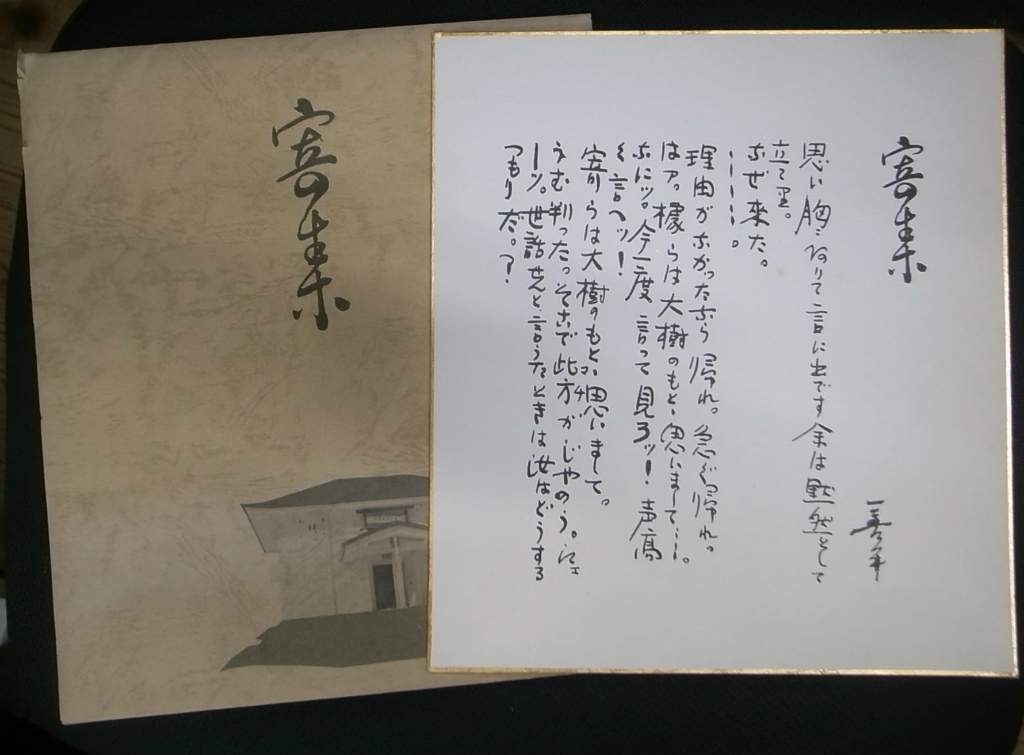 寄生木
寄生木
善平
思い胸ニありて言に出でず余は黙然として
立て里。
なぜ来た。
…………。
理由がなかったなら帰れ。急ぎ帰れ。
はァ。據らは大樹のもと、思いまして…。
なにッ。今一度言って見ろッ!声高
く言へッ!
寄らは大樹のもとゝ思いまして。
うむ判った。そこで此方がじやのう。にェ
ーッ。世話せんと言うたときは汝はどうする
つもりだ。?